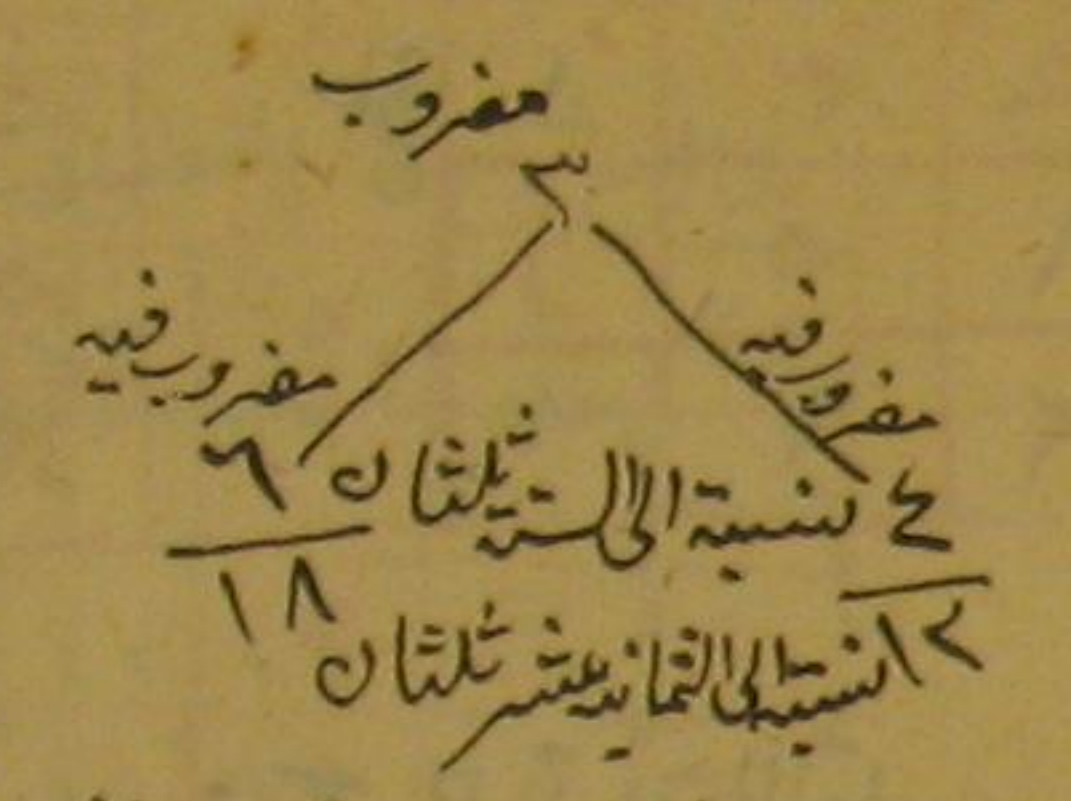 مضروب
٣
مضروب فيه
مضروب فيه
٤ نسبة الى الستة ثلثان ٦
١٢ نسبته الى الثمانية عشر ثلثان ١٨